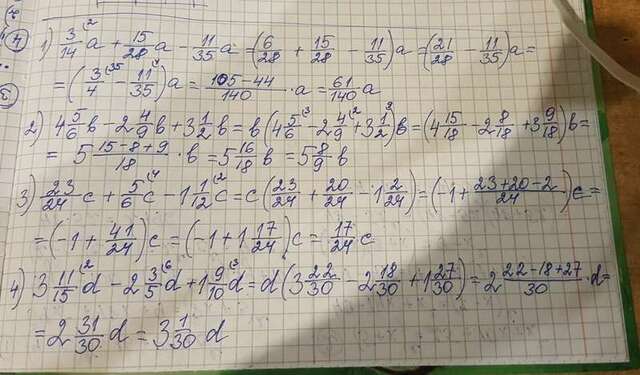 1) 3/14 a + 15/28 a - 11/35 a = (6/28 + 15/28 - 11/35)a = (21/28 - 11/35)a =
= (3/4 - 11/35)a = 105-44/140 · a = 61/140 a
2) 4 5/6 b - 2 4/9 b + 3 1/2 b = b(4 5/6 - 2 4/9 + 3 1/2)b = (4 15/18 - 2 8/18 + 3 9/18)b =
= 5 15-8+9/18 · b = 5 16/18 b = 5 8/9 b
3) 23/24 c + 5/6 c - 1 1/12 c = c(23/24 + 20/24 - 1 2/24) = (-1 + 23+20-2/24)c =
= (-1 + 41/24)c = (-1 + 1 17/24)c = 17/24 c
4) 3 11/15 d - 2 3/5 d + 1 9/10 d = d(3 22/30 - 2 18/30 + 1 27/30) = 2 22-18+27/30 · d =
= 2 31/30 d = 3 1/30 d